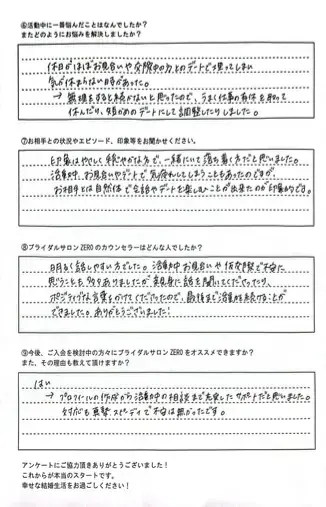 ⑥活動中に一番悩んだことはなんでしたか?
またどのようにお悩みを解決しましたか?
休日がほぼお見合いや交際中の方とのデートで埋ってしまい
気が休まらない時があった。
→ 無理をすると続かないと思ったので、うまく仕事の有休を取って
休んだり、短かめのデートにして調整したりしました。
⑦お相手との状況やエピソード、印象等をお聞かせください。
印象はやさしく穏やかな方で、一緒にいて落ち着く方だと思いました。
活動中、お見合いやデートで気疲れしてしまうこともあったのですが、
お相手とは自然体で会話やデートを楽しむことが出来たのが印象的です。
⑧ブライダルサロン ZERO のカウンセラーはどんな人でしたか?
明るく話しやすい方でした。活動中お見合いや仮交際で不安に
思うことも多々ありましたが親身に話を聞いてくださったり、
ポジティブな言葉をかけてくださったので、最後まで活動を続けることが
できました。ありがとうございました!
⑨今後、ご入会を検討中の方々にブライダルサロン ZERO をオススメできますか?
また、その理由も教えて頂けますか?
はい
→ プロフィールの作成から活動中の相談まで充実したサポートだと思いました。
対応も真摯スピーディで不安は無かったです。
アンケートにご協力頂きありがとうございました!
これからが本当のスタートです。
幸せな結婚生活をお過ごしください!